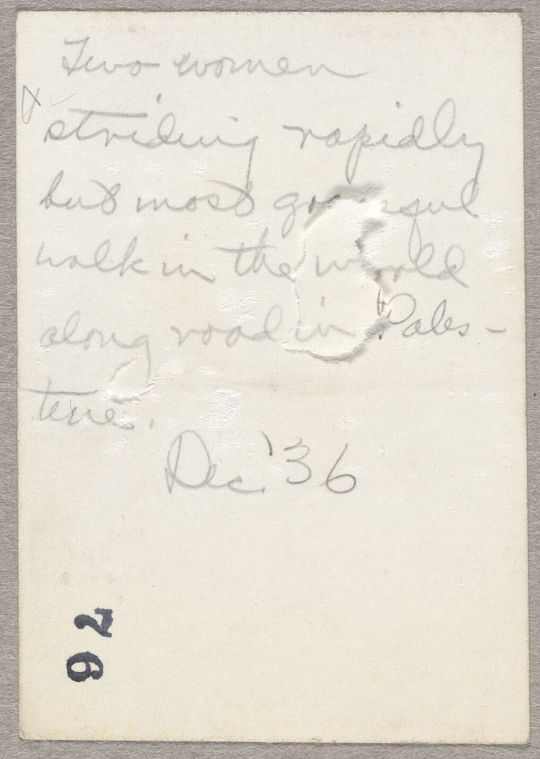 Two women
x
striding rapidly
but most graceful
walk in the world
along road in Pales-
tine.
Dec. '36
92